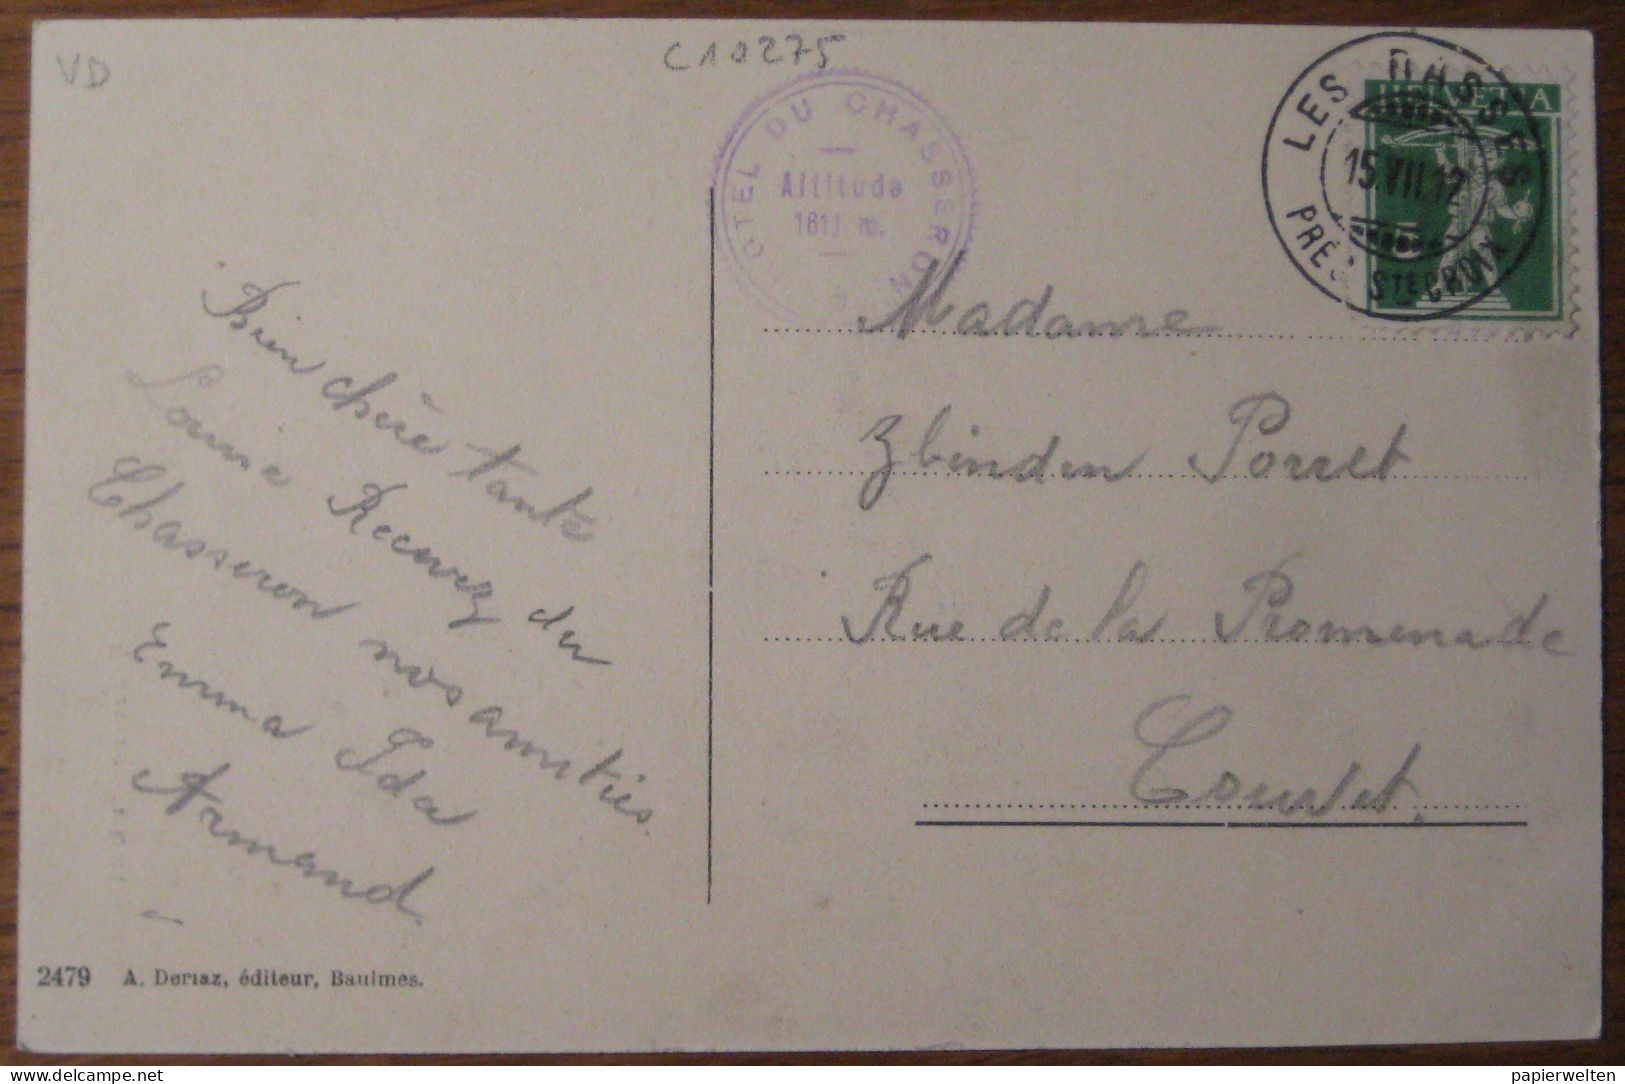 VD
C10275
HOTEL DU CHASSERON
Altitude
1611 m.
HELVETIA
5
LES RASSES
15.VII.12
PRÈS STE CROIX
Bien chère tante
Louise Recevez du
Chasseron nos amitiés.
Emma Ida
Armand
Madame
Zbinden Porret
Rue de la Promenade
Couvet.
2479 A. Deriaz, éditeur, Baulmes.
delcampe.net
papierwelten